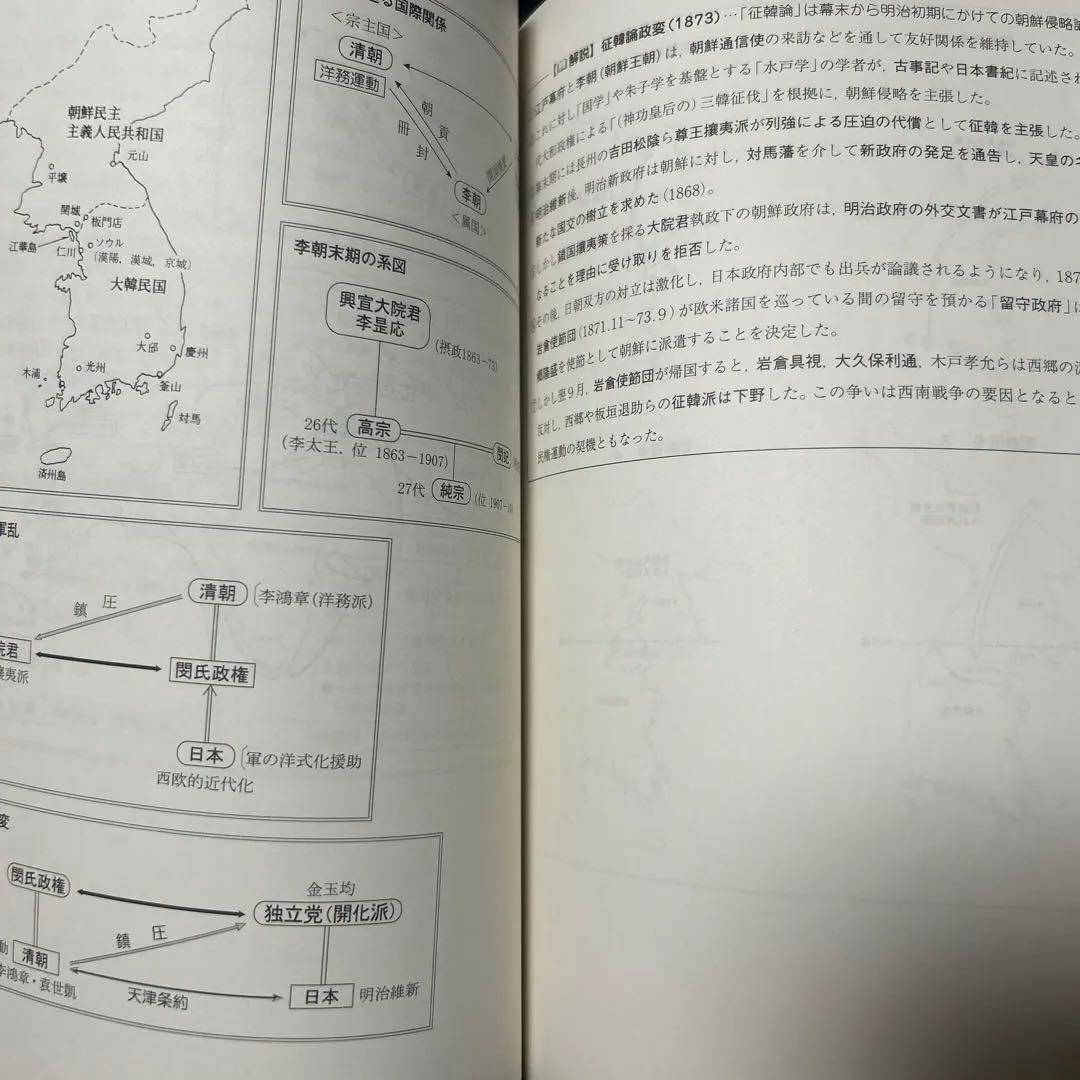 る国際関係
<宗主国>
清朝
洋務運動
朝貢
冊封
李朝
<属国>
朝鮮民主
主義人民共和国
元山
平壌
開城
板門店
江華島
仁川
ソウル
(漢陽，漢城，京城)
大韓民国
大邱
慶州
光州
木浦
釜山
対馬
済州島
李朝末期の系図
興宣大院君
李昰応
(摂政1863−73)
26代 高宗
(李太王．位 1863−1907)
閔妃
27代 純宗 (位 1907−10)
軍乱
清朝 李鴻章(洋務派)
鎮圧
院君
攘夷派
閔氏政権
日本 軍の洋式化援助
西欧的近代化
変
閔氏政権
金玉均
独立党(開化派)
鎮圧
清朝
李鴻章・袁世凱
天津条約
日本 明治維新
【解説】征韓論政変(1873)…「征韓論」は幕末から明治初期にかけての朝鮮侵略論
江戸幕府と李朝(朝鮮王朝)は，朝鮮通信使の来訪などを通して友好関係を維持していた。
これに対し「国学」や朱子学を基盤とする「水戸学」の学者が，古事記や日本書紀に記述され
代大和政権による「(神功皇后の)三韓征伐」を根拠に，朝鮮侵略を主張した。
幕末期には長州の吉田松陰ら尊王攘夷派が列強による圧迫の代償として征韓を主張した。
明治維新後，明治新政府は朝鮮に対し，対馬藩を介して新政府の発足を通告し，天皇の
新たな国交の樹立を求めた(1868)。
しかし鎖国攘夷策を採る大院君執政下の朝鮮政府は，明治政府の外交文書が江戸幕府の
なることを理由に受け取りを拒否した。
その後，日朝双方の対立は激化し，日本政府内部でも出兵が論議されるようになり，187
岩倉使節団(1871.11〜73.9)が欧米諸国を巡っている間の留守を預かる「留守政府」は
郷隆盛を使節として朝鮮に派遣することを決定した。
しかし翌9月，岩倉使節団が帰国すると，岩倉具視，大久保利通，木戸孝允らは西郷の派
反対し，西郷や板垣退助らの征韓派は下野した。この争いは西南戦争の要因となると
民権運動の契機ともなった。